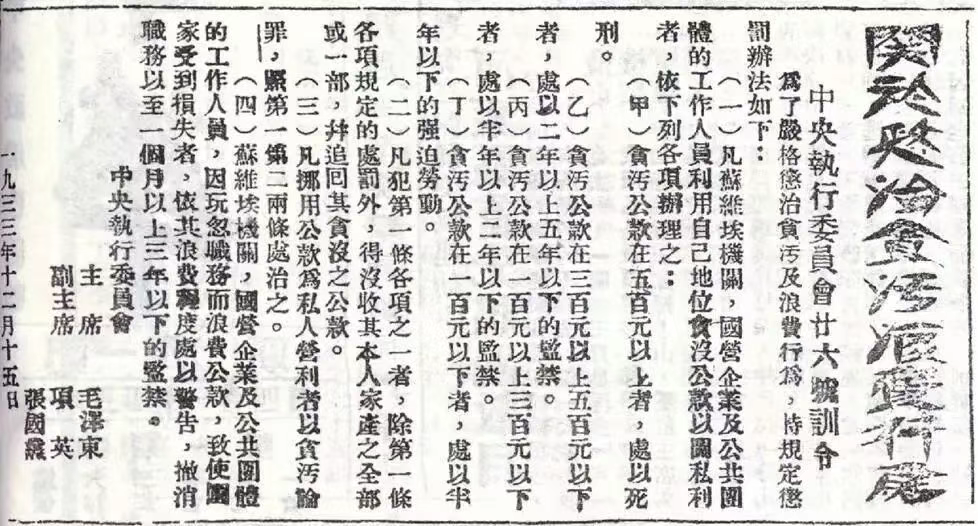 関於惩治貪污浪費行為
中央執行委員會廿六號訓令
為了嚴格懲治貪污及浪費行為，特規定懲
罰辦法如下：
（一）凡蘇維埃機關，國營企業及公共團
體的工作人員利用自己地位貪沒公款以圖私利
者，依下列各項辦理之：
（甲）貪污公款在五百元以上者，處以死
刑。
（乙）貪污公款在三百元以上五百元以下
者，處以二年以上五年以下的監禁。
（丙）貪污公款在一百元以上三百元以下
者，處以半年以上二年以下的監禁。
（丁）貪污公款在一百元以下者，處以半
年以下的强迫勞動。
（二）凡犯第一條各項之一者，除第一條
各項規定的處罰外，得沒收其本人家產之全部
或一部，并追回其貪沒之公款。
（三）凡挪用公款為私人營利者以貪污論
罪，照第一第二兩條處治之。
（四）蘇維埃機關，國營企業及公共團體
的工作人員，因玩忽職務而浪費公款，致使國
家受到損失者，依其浪費程度處以警告，撤消
職務以至一個月以上三年以下的監禁。
中央執行委員會
主席 毛澤東
副主席 項英
張國燾
一九三三年十二月十五日